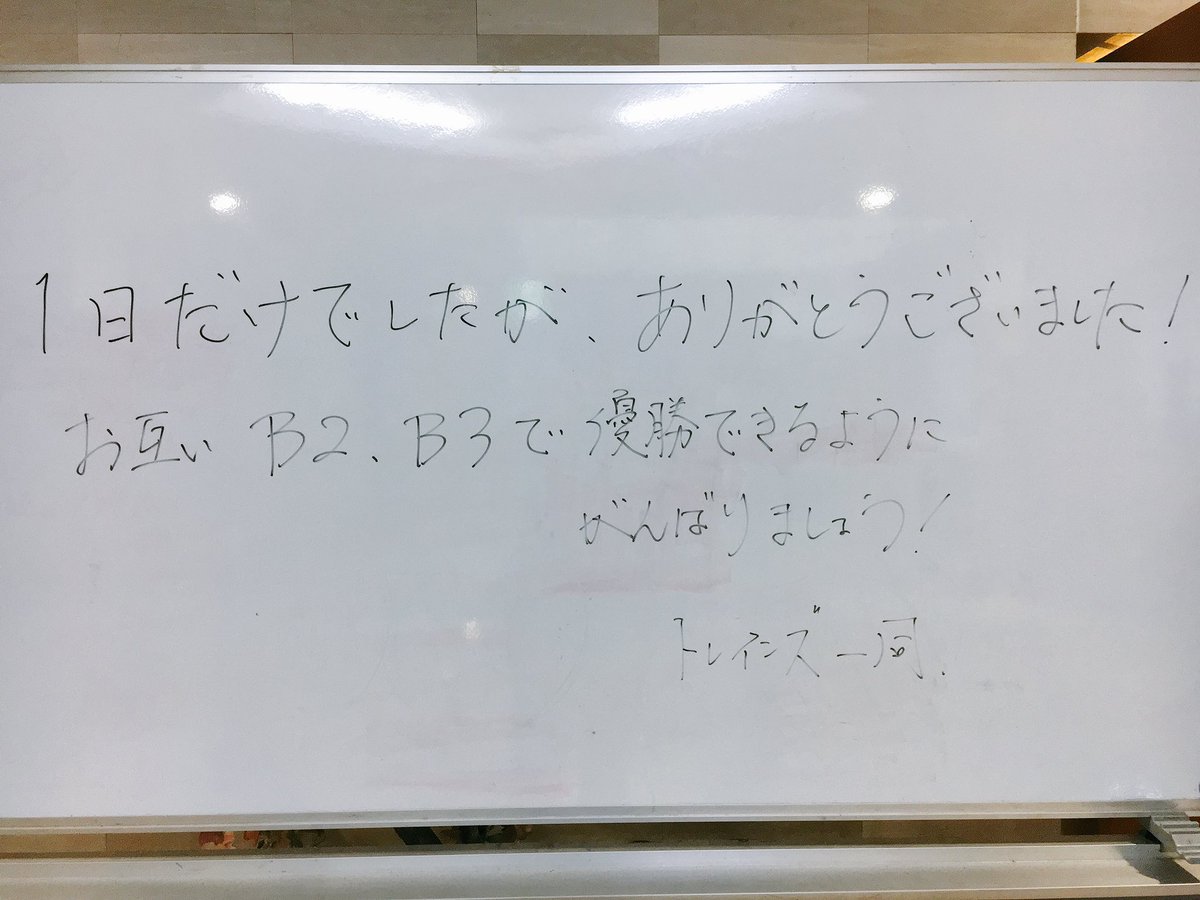 1日だけでしたが、ありがとうございました!
お互いB2、B3で優勝できるように
がんばりましょう!
トレインズ一同.